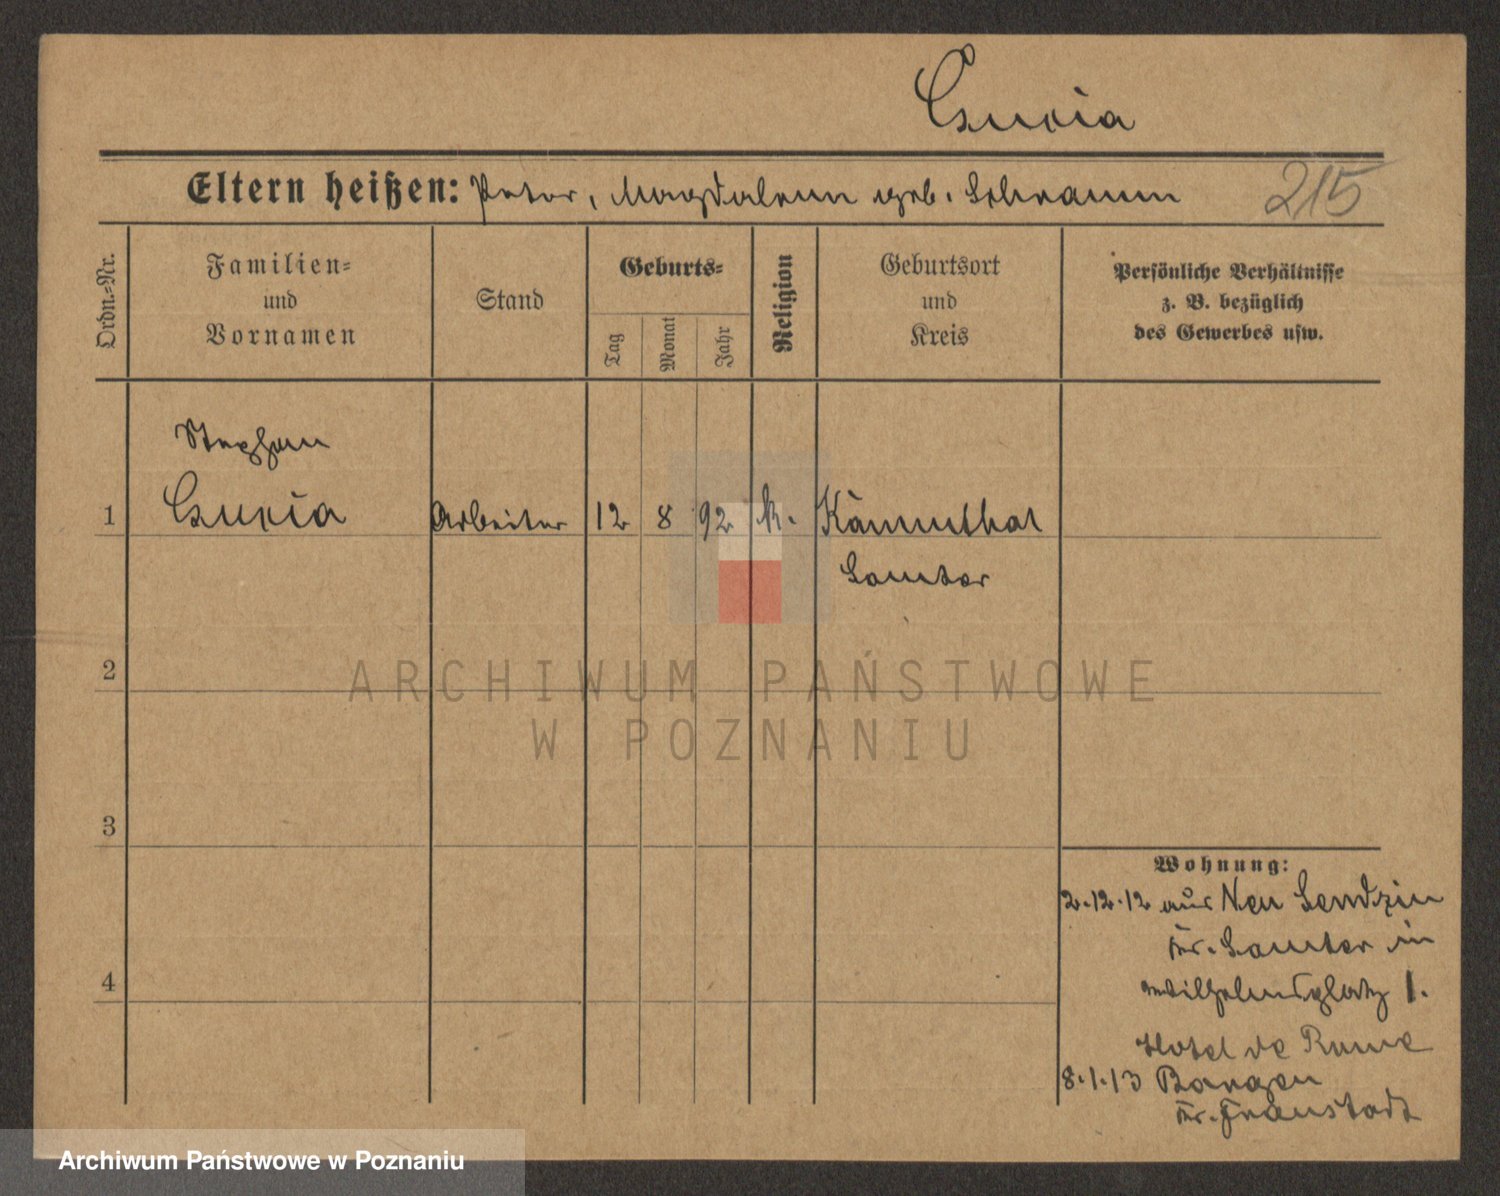 Eltern heißen: Peter, Magdalena geb. Schramm 215
Ordn.=Nr.
Familien=
und
Vornamen
Stand
Geburts=
Tag
Monat
Jahr
Religion
Geburtsort
und
Kreis
Persönliche Verhältnisse
z. B. bezüglich
des Gewerbes usw.
Stephan
1 Arbeiter 12 8 92 k. Kämmthal
Samter
2
ARCHIWUM PAŃSTWOWE
W POZNANIU
3
Wohnung:
2.12.12 aus Neu
Kr. Samter in
4 Wilhelmsplatz 1.
Hotel de Rome
8.1.13 Bargen
Kr. Fraustadt
Archiwum Państwowe w Poznaniu